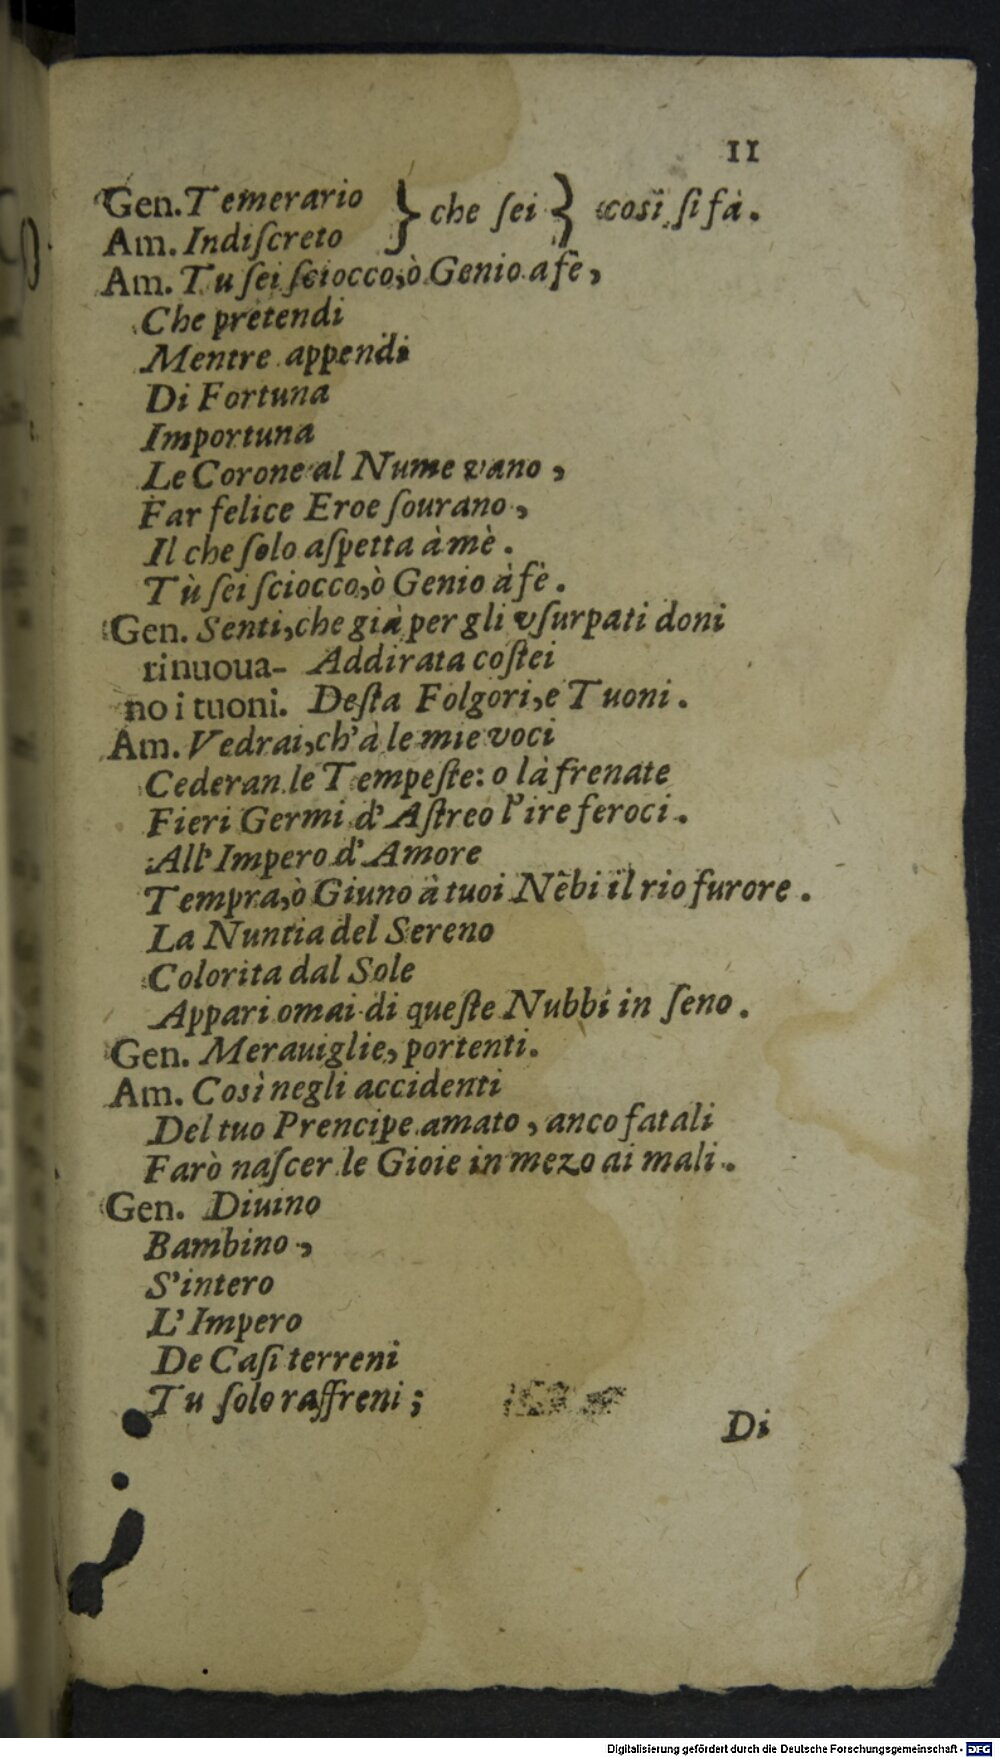 11
Gen. Temerario } che ſei } così ſi fà.
Am. Indiſcreto
Am. Tu ſei ſciocco, ò Genio a fè,
Che pretendi
Mentre appendi
Di Fortuna
Importuna
Le Corone al Nume vano,
Far felice Eroe ſourano,
Il che ſolo aſpetta à mè.
Tù ſei ſciocco, ò Genio à fè.
Gen. Senti, che già per gli vſurpati doni
rinuoua- Addirata coſtei
no i tuoni. Deſta Folgori, e Tuoni.
Am. Vedrai, ch'à le mie voci
Cederan le Tempeſte: o là frenate
Fieri Germi d'Aſtreo l'ire feroci.
All'Impero d'Amore
Tempra, ò Giuno à tuoi Nẽbi il rio furore.
La Nuntia del Sereno
Colorita dal Sole
Appari omai di queſte Nubbi in ſeno.
Gen. Merauiglie, portenti.
Am. Così negli accidenti
Del tuo Prencipe amato, anco fatali
Farò naſcer le Gioie in mezo ai mali.
Gen. Diuino
Bambino,
S'intero
L'Impero
De Caſi terreni
Tu ſolo raffreni;
Di
Digitalisierung gefördert durch die Deutsche Forschungsgemeinschaft - DFG